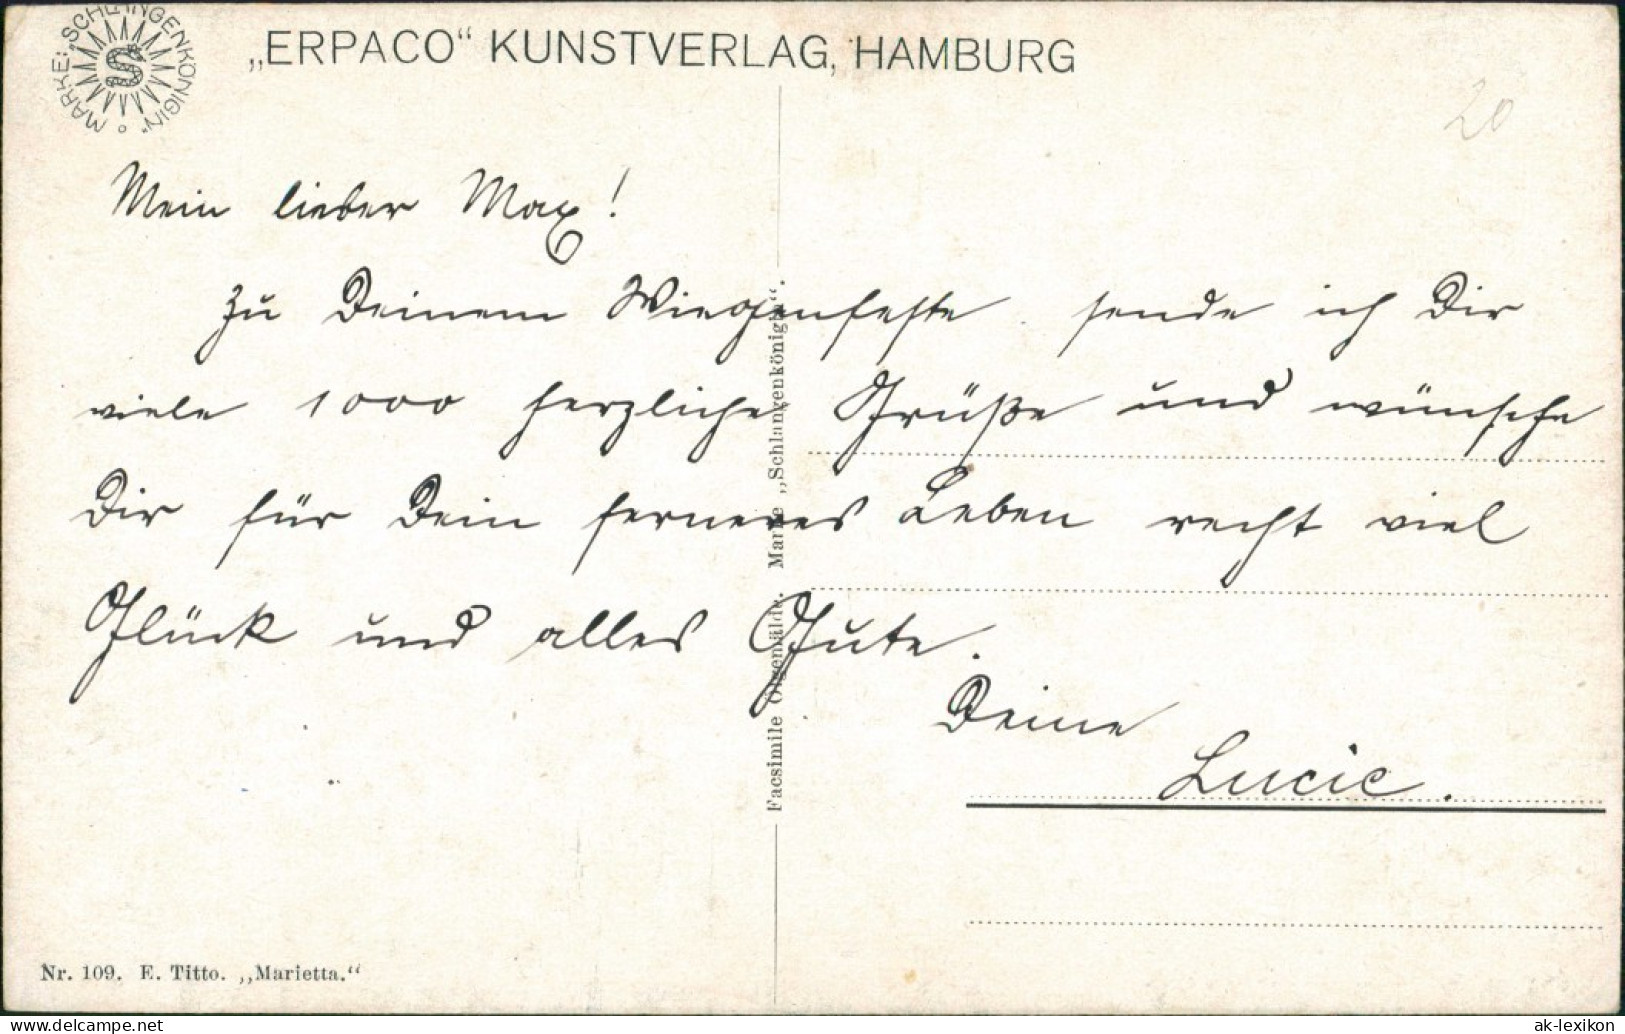 MARKE: „SCHLANGENKÖNIGIN"
S
„ERPACO“ KUNSTVERLAG, HAMBURG
20
Mein lieber Max!
Zu Deinem Wiegenfeste sende ich Dir
viele 1000 herzliche Grüße und wünsche
Dir für Dein ferneres Leben recht viel
Glück und alles Gute.
Deine
Lucie.
Facsimile Ölgemälde. Marke „Schlangenkönigin“.
Nr. 109. E. Titto. „Marietta.“
www.delcampe.net
ak-lexikon